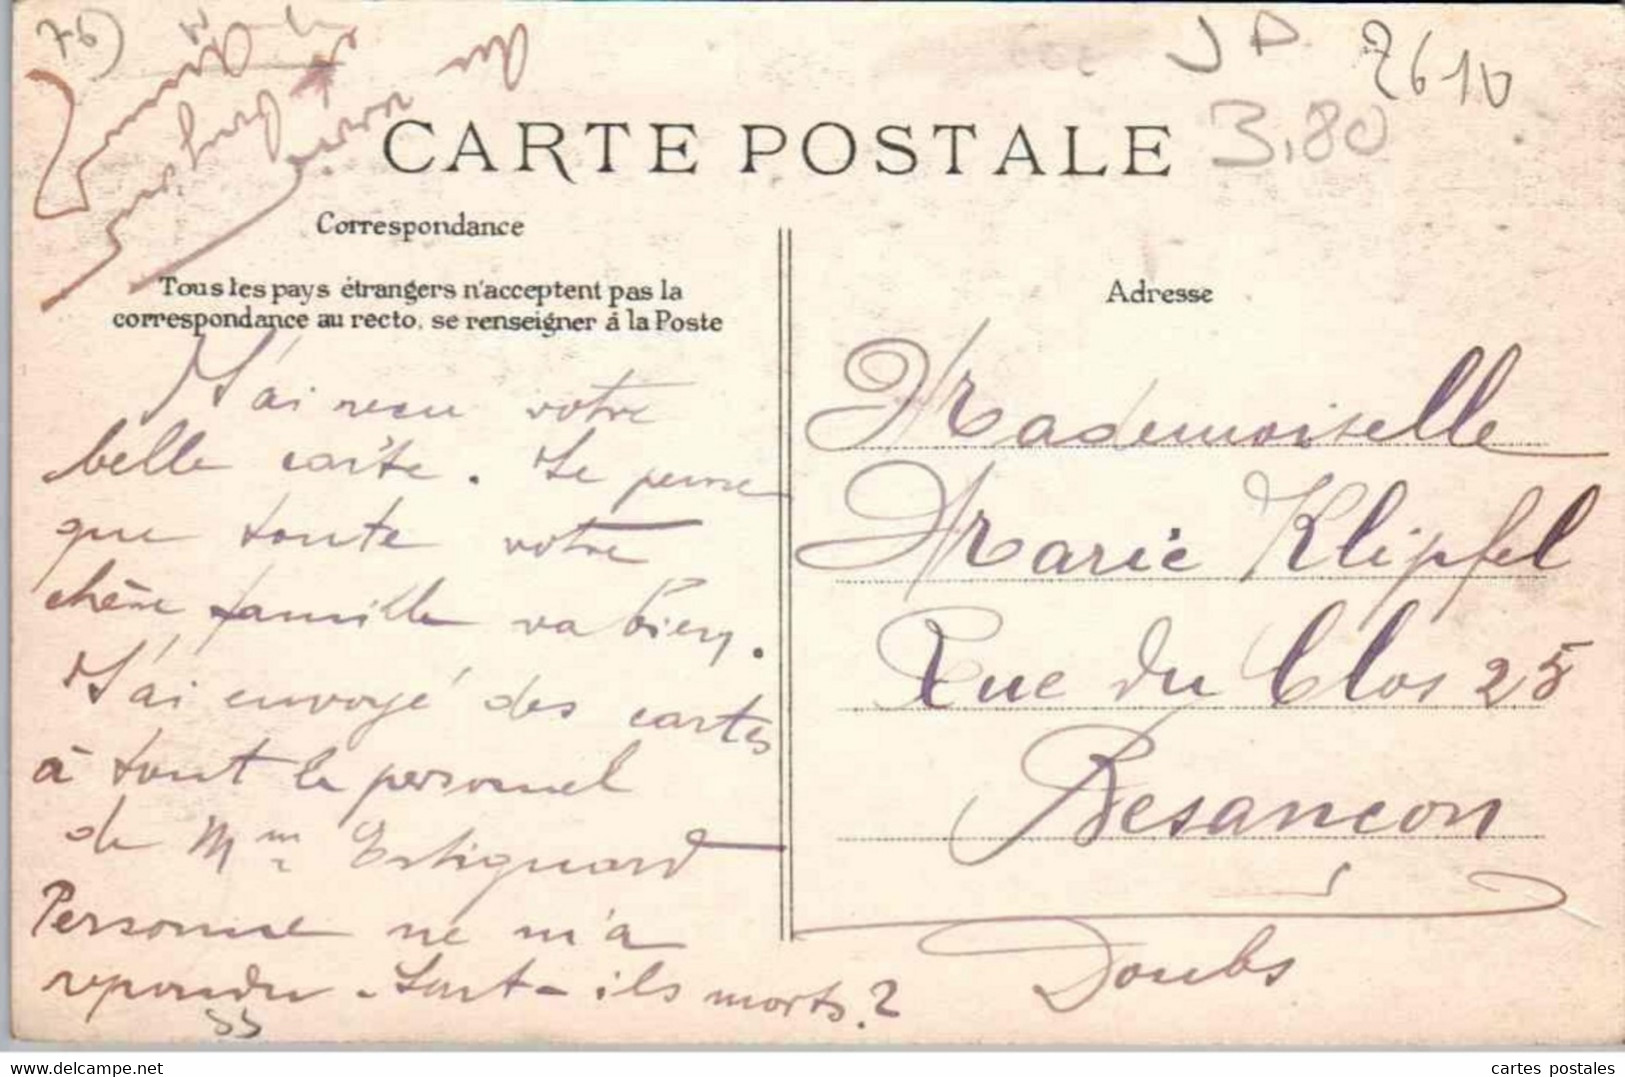 76)
J D
2610
3,80
CARTE POSTALE
Correspondance
Tous les pays étrangers n'acceptent pas la
correspondance au recto, se renseigner á la Poste
J'ai reçu votre
belle carte. Je pense
que toute votre
chère famille va bien.
J'ai envoyé des cartes
à tout le personnel
de Mme Estignard
Personne ne m'a
repondu. Sont-ils morts?
Adresse
Mademoiselle
Marie Klipfel
Rue du Clos 25
Besançon
Doubs
delcampe.net
cartes postales